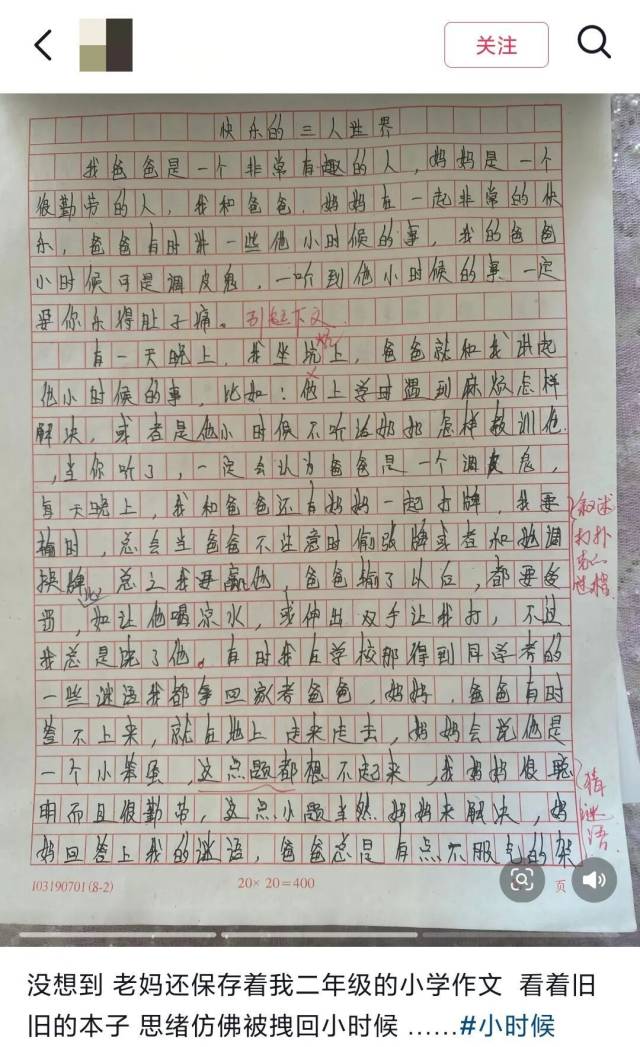 关注
快乐的三人世界
我爸爸是一个非常有趣的人，妈妈是一个
很勤劳的人，我和爸爸．妈妈在一起非常的快
乐，爸爸有时讲一些他小时候的事，我的爸爸
小时候可是调皮鬼，一听到他小时候的事一定
要你乐得肚子痛。引起下文
炕
有一天晚上，我坐坑上，爸爸就和我讲起
他小时候的事，比如：他上学时遇到麻烦怎样
解决，或者是他小时候不听话奶奶怎样教训他
，当你听了，一定会认为爸爸是一个调皮鬼，
每天晚上，我和爸爸还有妈妈一起打牌，我要
输时，总会当爸爸不注意时偷张牌或者和她调
换牌，总之我要赢他，爸爸输了以后，都要受
叙述
打扑
克的
过程
罚，比如让他喝凉水，或伸出双手让我打，不过
我总是饶了他。有时我在学校那得到同学考的
一些谜语我都拿回家考爸爸，妈妈，爸爸有时
答不上来，就在地上走来走去，妈妈会说他是
一个小笨蛋，这点题都想不起来，我妈妈很聪
明而且很勤劳，这点小题当然妈妈来解决，妈
妈回答上我的谜语，爸爸总是有点不服气的架
猜
谜
语
103190701(8-2)
20×20=400
页
没想到 老妈还保存着我二年级的小学作文 看着旧
旧的本子 思绪仿佛被拽回小时候 ......#小时候